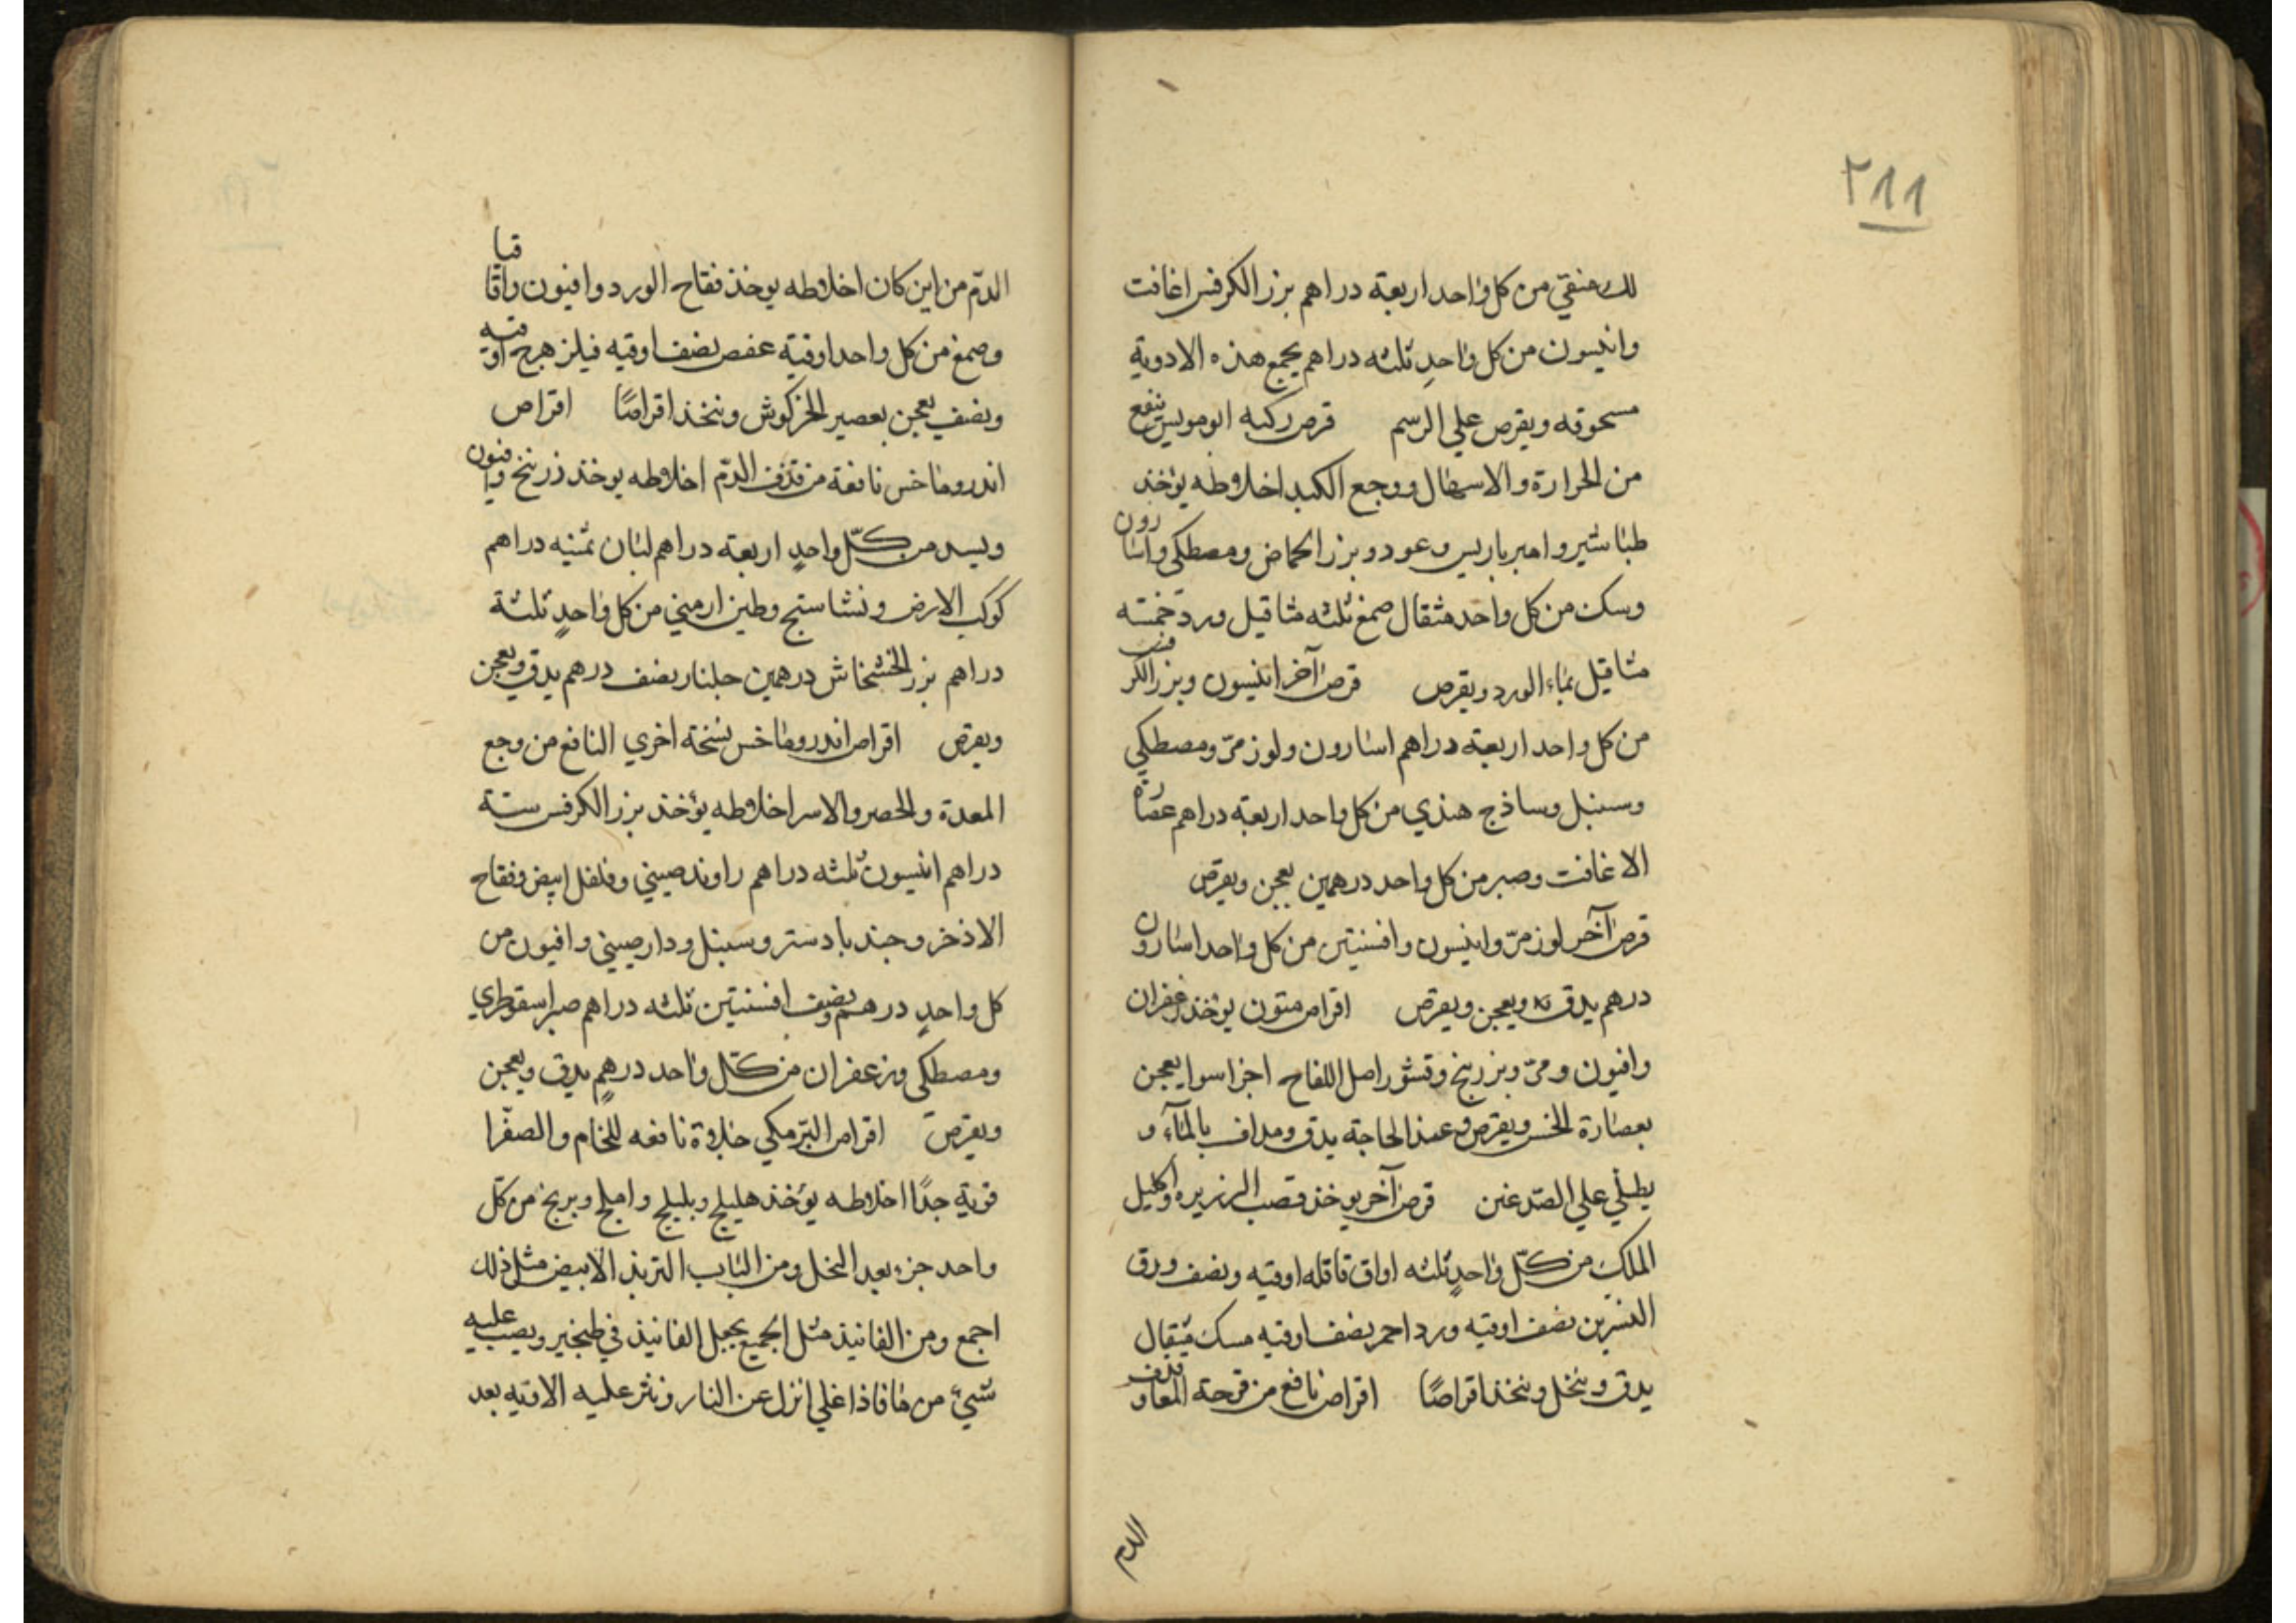 ٢٨٨
لك منقي من كل واحد اربعة دراهم بزر الكرفس اغافت
وانيسون من كل واحدٍ ثلثه دراهم يجمع هذه الادوية
مسحوقه ويقرص علي الرسم قرص ركبه ابو مويس ينفع
من الحرارة والاسهال ووجع الكبد اخلاطه يؤخذ
طباشير وامبرباريس وعود وبزر الحماض ومصطكى واسارون
وسك من كل واحد مثقال صمغ ثلثه مثاقيل ورد خمسة
مثاقيل بماء الورد ويقرص قرص آخر انيسون وبزر الكرفس
من كل واحد اربعة دراهم اسارون ولوز مرّ ومصطكي
وسنبل وساذج هندي من كل واحد اربعة دراهم عصارة
الاغافت وصبر من كل واحد درهمين يعجن ويقرص
قرص آخر لوز مرّ وانيسون وافسنتين من كل واحد اسارون
درهم يدق ويعجن ويقرص اقراص مثون يؤخذ زعفران
وافيون ومرّ وبزر بنج وقشور اصل اللفاح اجزا سوا يعجن
بعصارة الخس ويقرص وعند الحاجة يدق ومداف بالمآء و
يطلي علي الصدغين قرص آخر يوخذ قصب الزريره واكليل
الملك من كلّ واحدٍ ثلثه اواق قاقله اوقيه ونصف ورق
النسرين نصف اوقيه ورد احمر نصف اوقيه مسك مثقال
يدق وينخل ويتخذ اقراصًا اقراص نافع من قرحة المعا وقذف
الدم
الدّم من اين كان اخلاطه يوخذ فقاح الورد وافيون واقاقيا
وصمغ من كل واحد اوقية عفص نصف اوقيه فيلزهرج اوقيه
ونصف يعجن بعصير المرزكوش ويتخذ اقراصًا اقراص
اندروماخس نافعة من قذف الدّم اخلاطه يوخذ زرنيخ وافيون
وبسد من كلّ واحدٍ اربعة دراهم لبان ثمنيه دراهم
كوكب الارض ونشاستج وطين ارمني من كل واحدٍ ثلثة
دراهم بزر الخشخاش درهمين جلنار نصف درهم يدق ويعجن
ويقرص اقراص اندروماخس نسخة اخري النافع من وجع
المعدة والحصر والاسر اخلاطه يؤخذ بزر الكرفس ستة
دراهم انيسون ثلثه دراهم راوند صيني وفلفل ابيض وفقاح
الاذخر وجندبادستر وسنبل ودارصيني وافيون من
كل واحدٍ درهم ونصف افسنتين ثلثه دراهم صبر اسقوطري
ومصطكى وزعفران من كلّ واحد درهمٍ يدق ويعجن
ويقرص اقراص البرمكي حلاوة نافعه للخام والصفرا
قوية جدًا اخلاطه يؤخذ هليلج وبليلج واملج وبرنج من كل
واحد جزء بعد النخل ومن اللباب التربذ الابيض مثل ذلك
اجمع ومن الفانيذ مثل الجميع يجعل الفانيذ في طنجير ويصب عليه
شيئ من ما فاذا غلي انزل عن النار ونثر عليه الادويه بعد